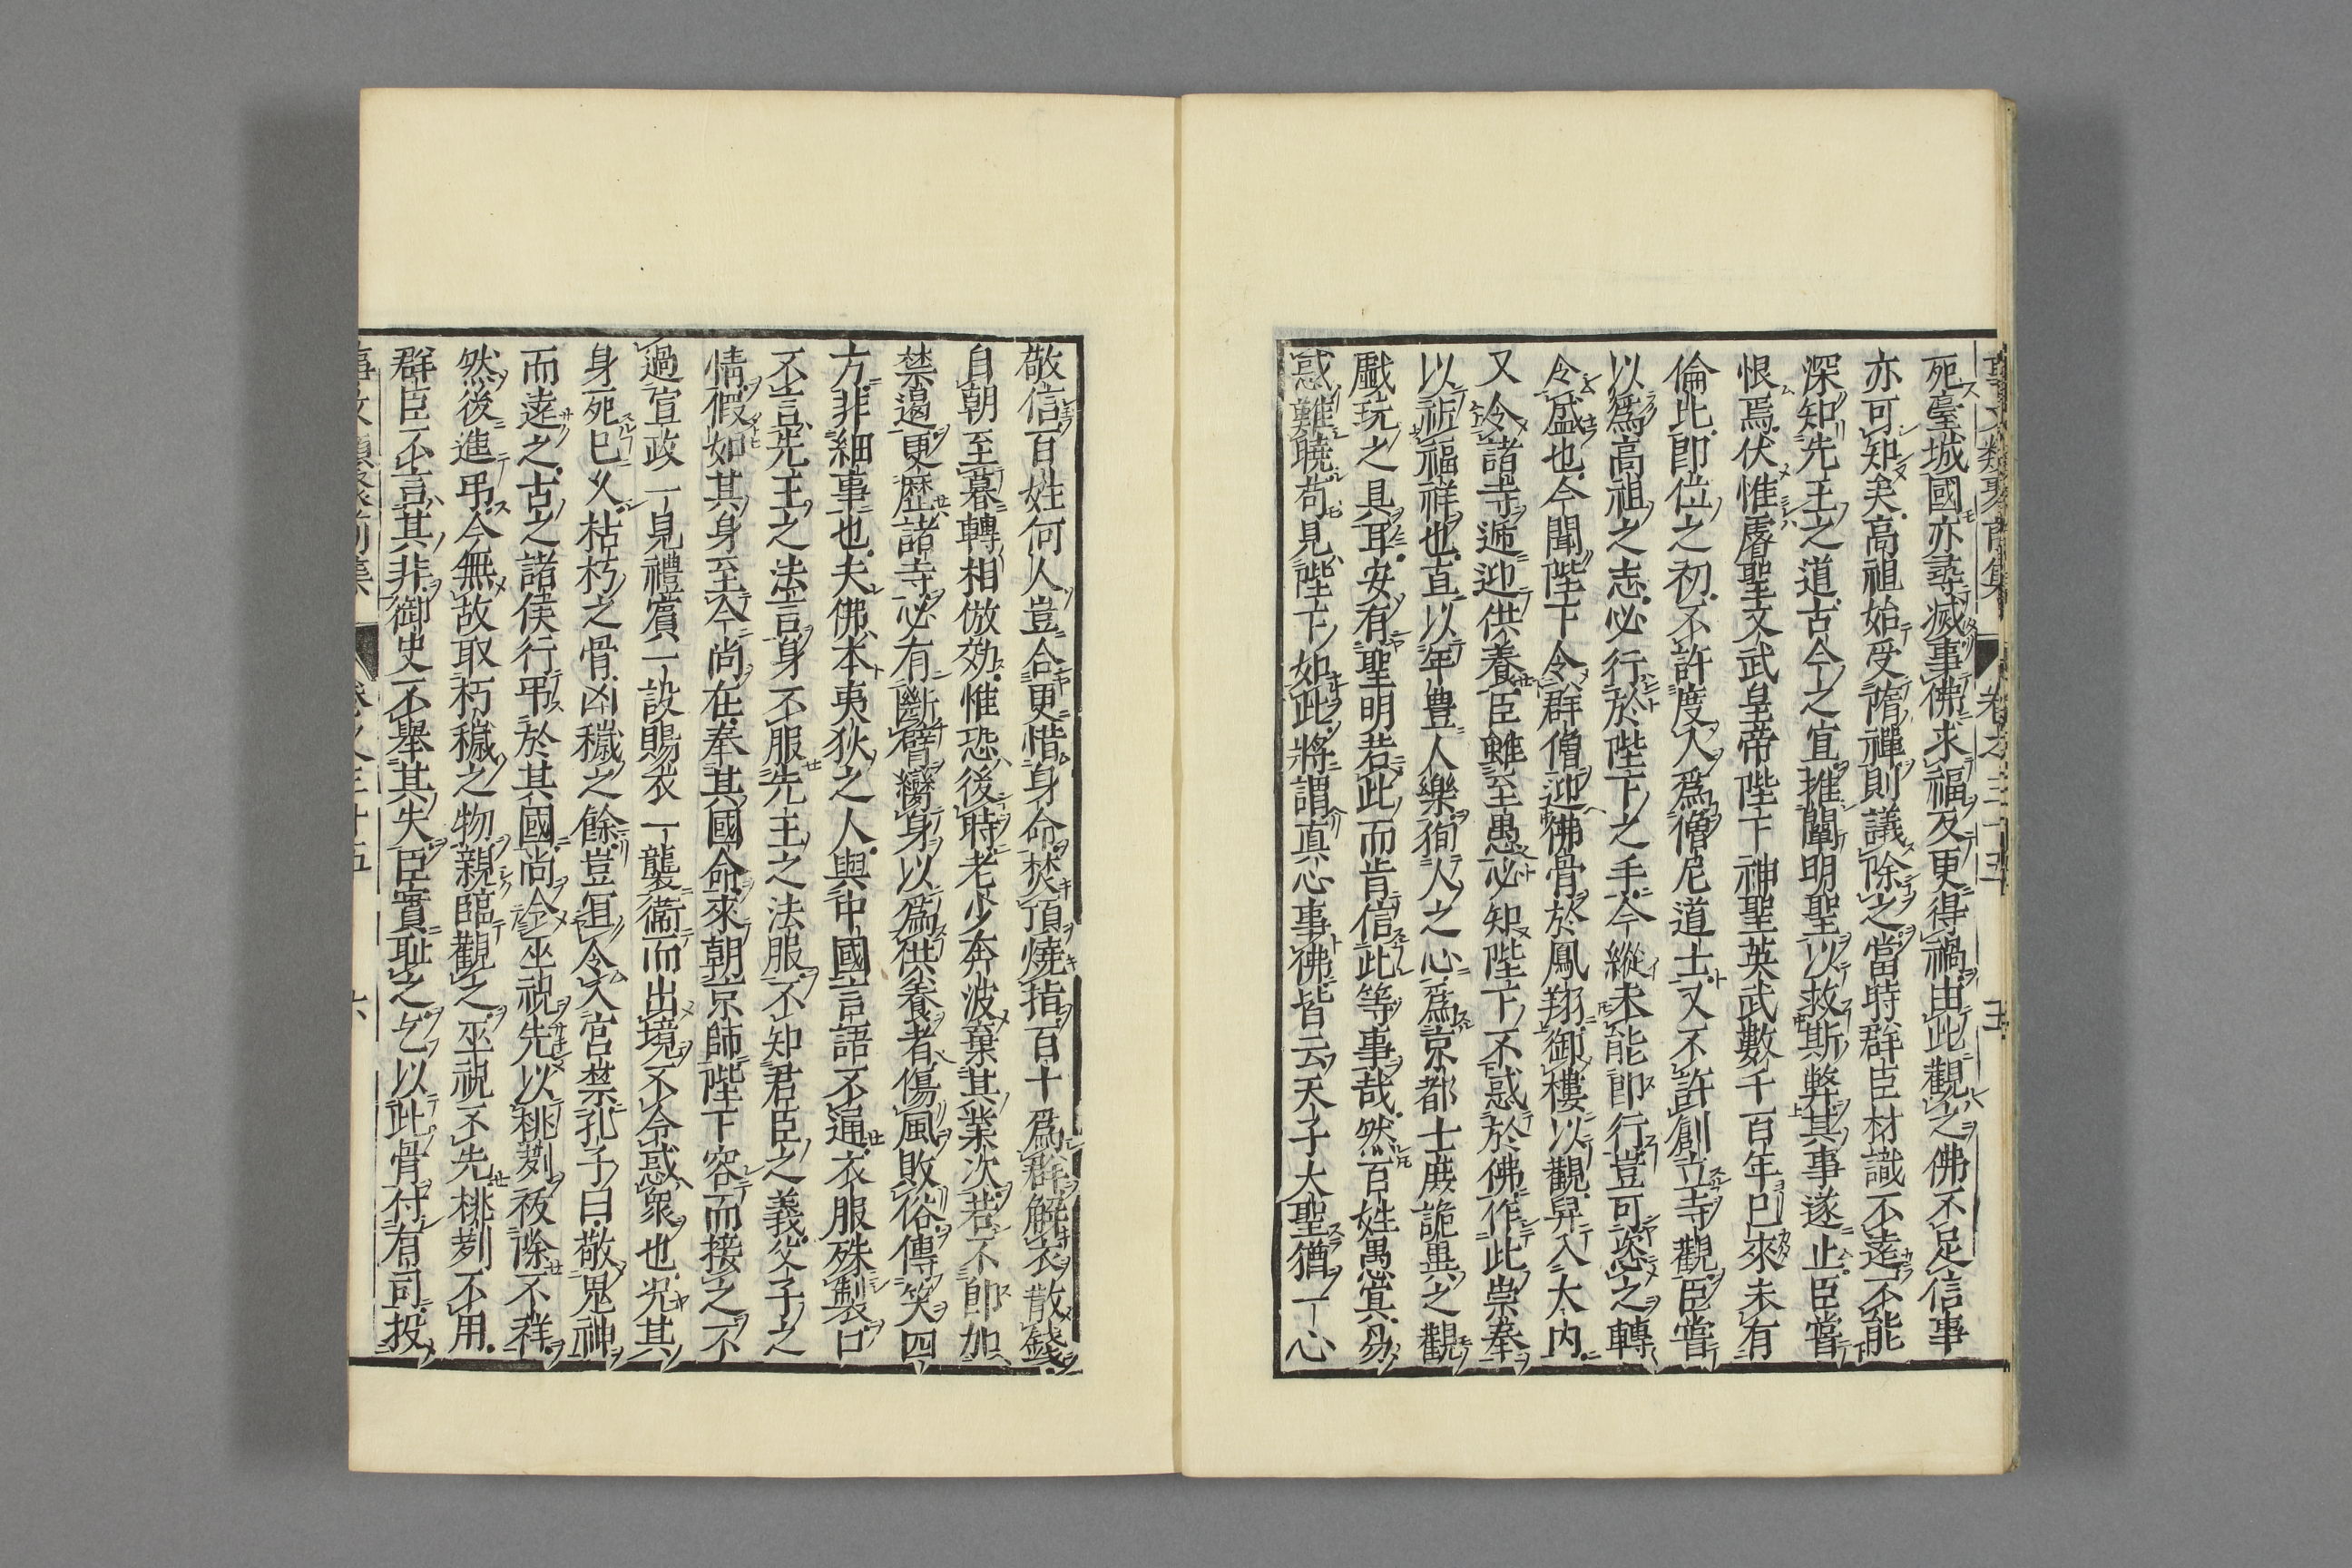 事文類聚前集 卷之三十五 五
死臺城國亦尋滅事佛求福反更得禍由此觀之佛不足信事
亦可知矣高祖始受隋禪則議除之當時群臣材識不遠不能
深知先王之道古今之宜推闡明聖以救斯弊其事遂止臣嘗
恨焉伏惟睿聖文武皇帝陛下神聖英武數千百年已來未有
倫比即位之初不許度人爲僧尼道士又不許創立寺觀臣嘗
以爲高祖之志必行於陛下之手今縱未能即行豈可恣之轉
令盛也今聞陛下令群僧迎佛骨於鳳翔御樓以觀舁入大内
又令諸寺遞迎供養臣雖至愚必知陛下不惑於佛作此崇奉
以祈福祥也直以年豊人樂狥人之心爲京都士庶詭異之觀
戲玩之具耳安有聖明若此而肯信此等事哉然百姓愚冥易
惑難曉苟見陛下如此將謂真心事佛皆云天子大聖猶一心
敬信百姓何人豈合更惜身命焚頂燒指百十爲群解衣散錢
自朝至暮轉相倣効惟恐後時老少奔波棄其業次若不即加
禁遏更歷諸寺必有斷臂臠身以爲供養者傷風敗俗傳笑四
方非細事也夫佛本夷狄之人與中國言語不通衣服殊製口
不言先王之法言身不服先王之法服不知君臣之義父子之
情假如其身至今尚在奉其國命來朝京師陛下容而接之不
過宣政一見禮賓一設賜衣一襲衞而出境不令惑衆也况其
身死已久枯朽之骨凶穢之餘豈宜令入宮禁孔子曰敬鬼神
而遠之古之諸侯行弔於其國尚令巫祝先以桃茢祓除不祥
然後進弔今無故取朽穢之物親臨觀之巫祝不先桃茢不用
群臣不言其非御史不舉其失臣實耻之乞以此骨付有司投
事文類聚前集 卷之三十五 六